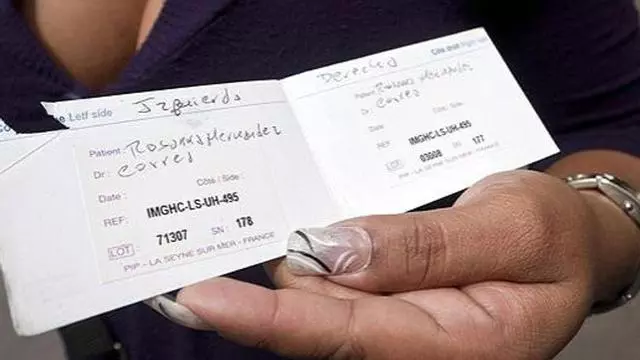 Left side Izquierdo
Patient: Rosanna Hernandez
Dr: Correa
Date: Côté / Side:
REF: IMGHC-LS-UH-495
LOT 71307 SN: 178
PIP - LA SEYNE SUR MER - FRANCE
Derecho
Patient:
Dr: Correa
Date: Côté / Side:
REF: IMGHC-LS-UH-495
LOT 03008 SN: 177
PIP - LA SEYNE SUR MER